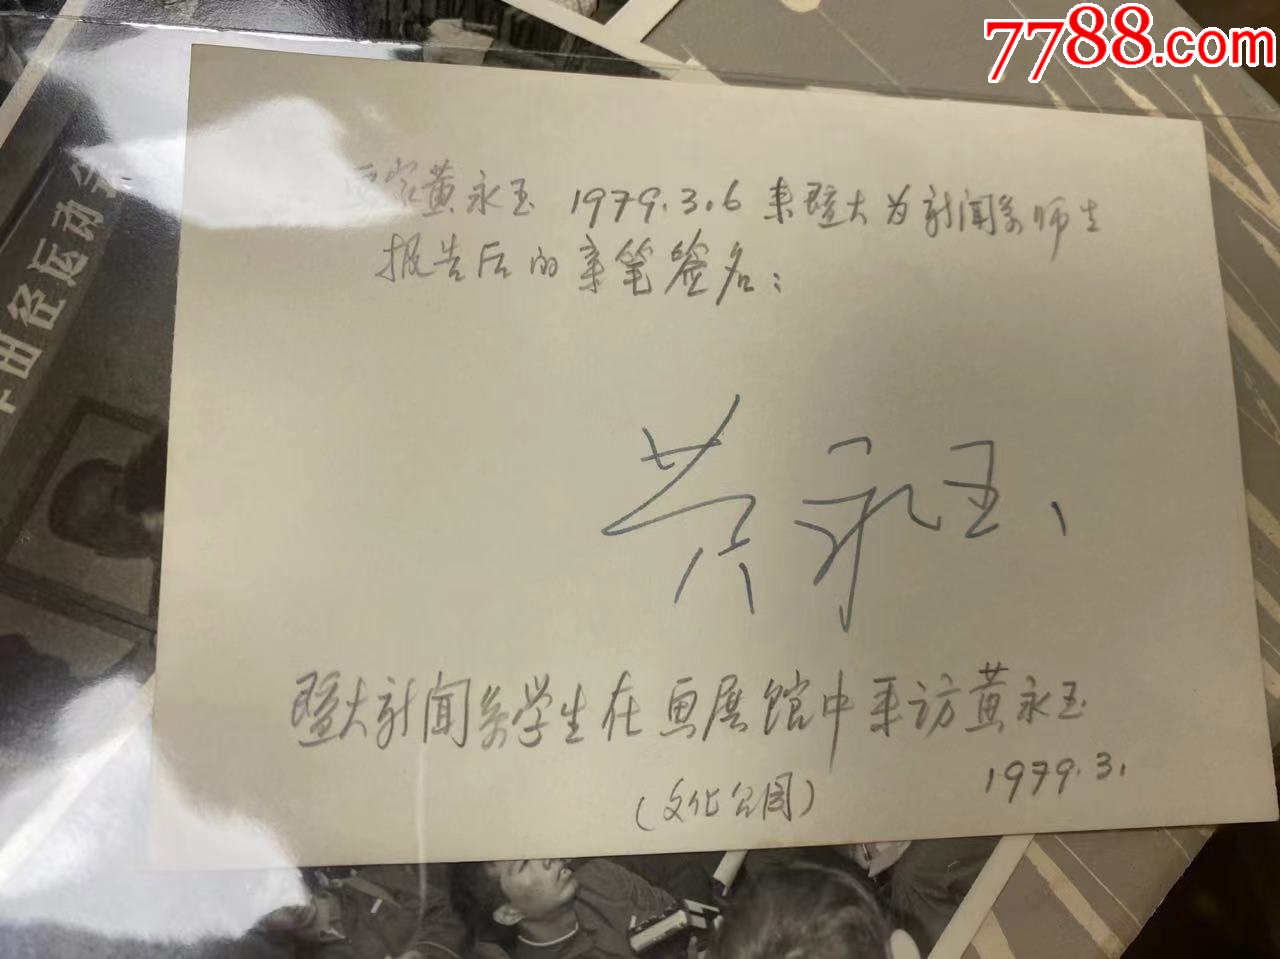 7788.com
画家黄永玉 1979.3.6 来暨大为新闻系师生
报告后的亲笔签名:
黄永玉、
暨大新闻系学生在画展馆中采访黄永玉
1979.3.
(文化公园)
径运动会